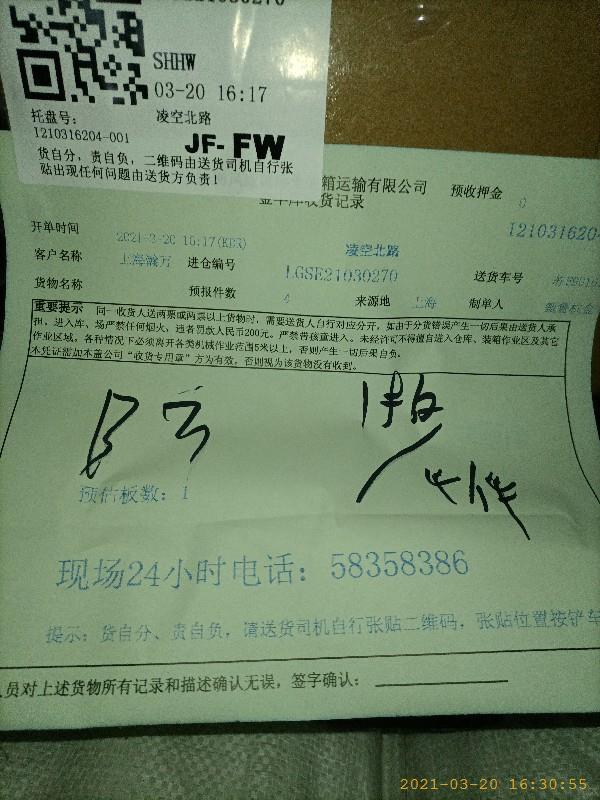 SHHW
03-20 16:17
托盘号：
凌空北路
1210316204-001
JF-FW
货自分，责自负，二维码由送货司机自行张
贴出现任何问题由送货方负责！
箱运输有限公司
预收押金
0
收货记录
开单时间
2021-3-20 16:17(KDR)
凌空北路
客户名称
上海瀚万
进仓编号
LGSE21030270
送货车号
货物名称
预报件数
4
来源地
上海
制单人
重要提示
同一收货人送两票或两票以上货物时，需要送货人自行对应分开，如由于分货错误产生一切后果由送货人承
担，进入库、场严禁任何烟火，违者罚款人民币200元。严禁带孩童进入。未经许可不得擅自进入仓库、装箱作业区及其它
作业区域。各种情况下必须离开各类机械作业范围5米以上，否则产生一切后果自负。
本凭证需加本盖公司“收货专用章”方为有效，否则视为该货物没有收到。
预估板数：1
现场24小时电话：58358386
提示：货自分、责自负，请送货司机自行张贴二维码，张贴位置按铲车
员对上述货物所有记录和描述确认无误，签字确认：
2021-03-20 16:30:55